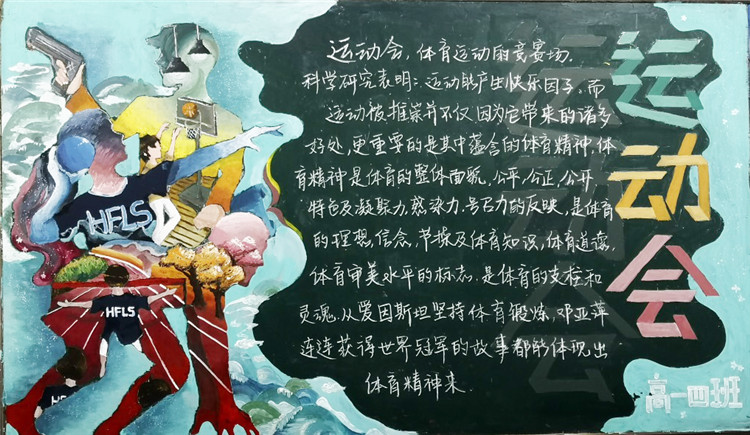 运动会，体育运动的竞赛场。
科学研究表明：运动能产生快乐因子。而
运动被推崇并不仅因为它带来的诸多
好处，更重要的是其中蕴含的体育精神，体
育精神是体育的整体面貌，公平，公正，公开
特色及凝聚力，感染力，号召力的反映，是体育
的理想，信念，节操及体育知识，体育道德，
体育审美水平的标志，是体育的支柱和
灵魂。从爱因斯坦坚持体育锻炼，邓亚萍
连连获得世界冠军的故事都的体现出
体育精神来
运动会
运动会
高一四班
HFLS
HFLS